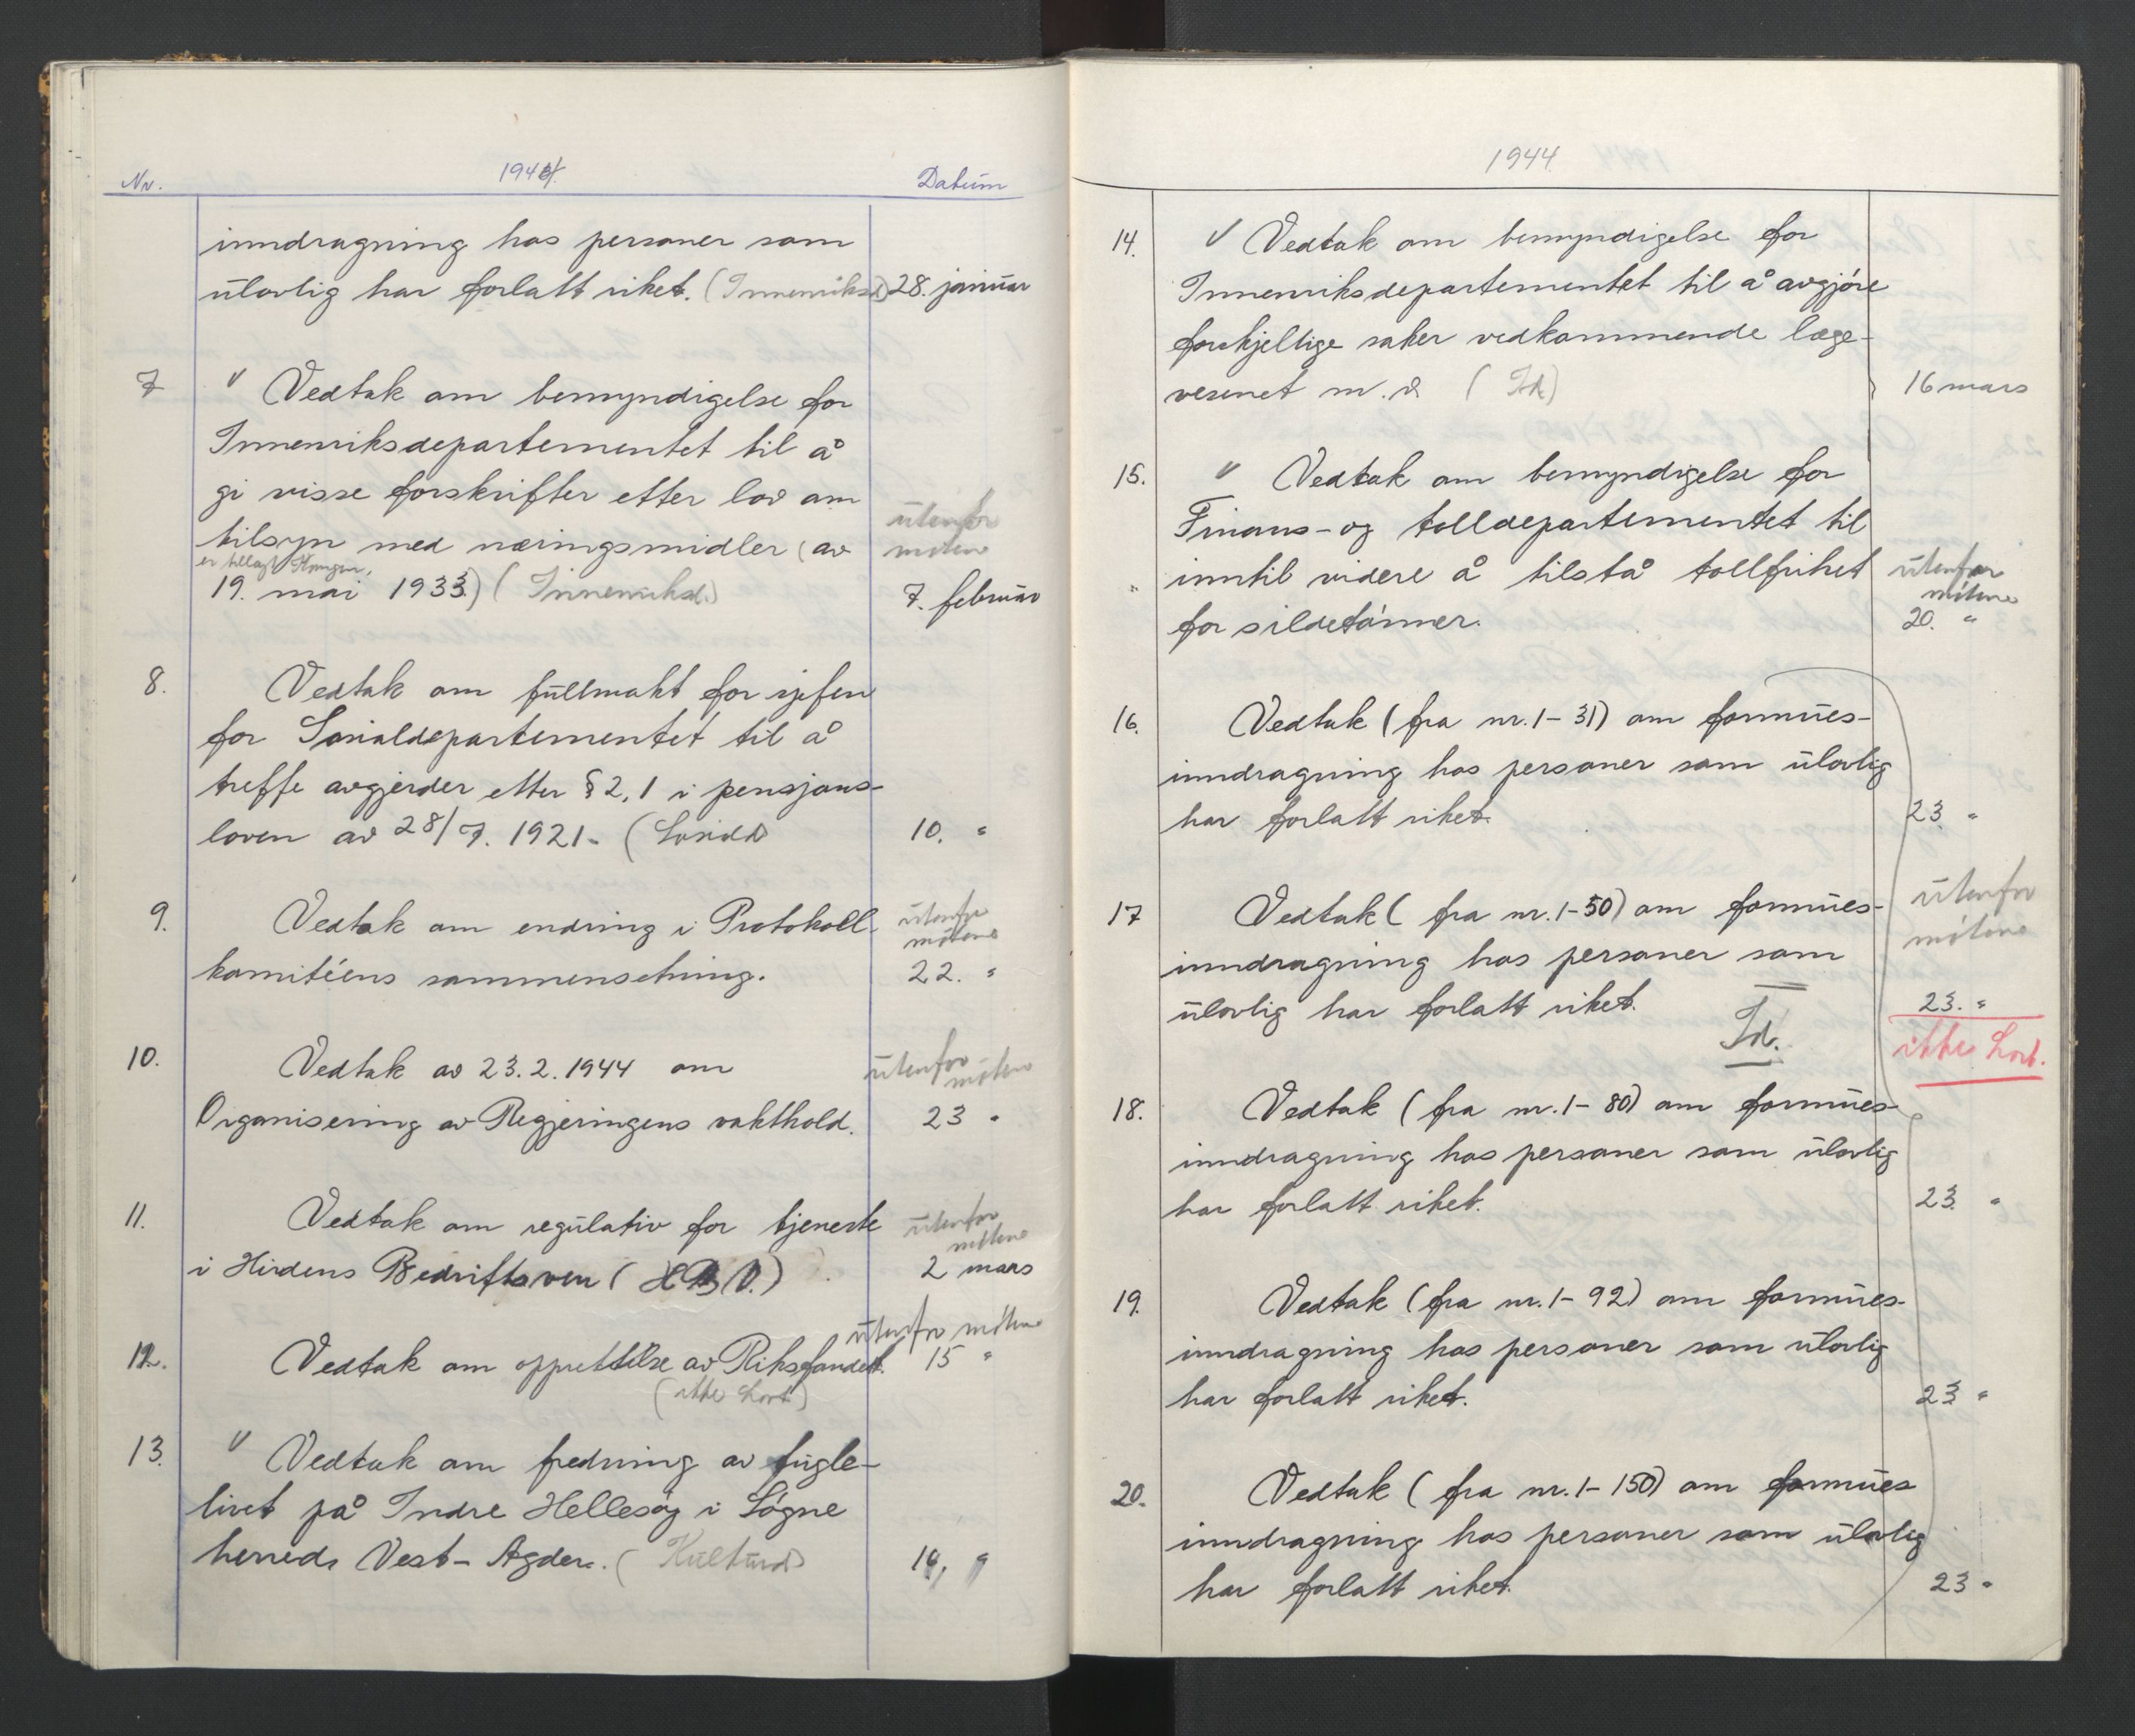 Nr. 1944. Datum
inndragning hos personer som
ulovlig har forlatt riket. (Innenriksd) 28. januar
7 v Vedtak om bemyndigelse for
Innenriksdepartementet til å
gi visse forskrifter etter lov om
utenfor
tilsyn med næringsmidler (av møtene
er tillagt Kongen,
19. mai 1933.) (Innenriksd.) 7. februar
8. Vedtak om fullmakt for sjefen
for Sosialdepartementet til å
treffe avgjerder etter § 2, 1 i pensjons-
loven av 28/7. 1921. (Sosiald 10. "
9. Vedtak om endring i Protokoll- utenfor
møtene
komitéens sammensetning. 22. "
10. Vedtak av 23.2.1944 om utenfor møtene
Organisering av Regjeringens vakthold. 23 "
11. Vedtak om regulativ for tjeneste utenfor
møtene
i Hirdens Bedriftsvern (H B V.) 2 mars
utenfor møtene
12. Vedtak om opprettelse av Riksfondet. 15 "
(ikke Lovt)
13. v Vedtak om fredning av fugle-
livet på Indre Hellesøy i Søgne
herred, Vest-Agder. (Kulturd) 16, "
1944
14. v Vedtak om bemyndigelse for
Innenriksdepartementet til å avgjøre
forskjellige saker vedkommende læge-
vesenet m.v. (Id) 16 mars
15. v Vedtak om bemyndigelse for
Finans- og tolldepartementet til
inntil videre å tilstå tollfrihet utenfor
møtene
for sildetønner. 20. "
16. Vedtak (fra nr. 1- 31) om formues-
inndragning hos personer som ulovlig
har forlatt riket. 23. "
17 Vedtak (fra nr. 1-50) om formues- utenfor
møtene
inndragning hos personer som
ulovlig har forlatt riket. 23. "
Id. ikke Lovt.
18. Vedtak (fra nr. 1- 80) om formues-
inndragning hos personer som ulovlig
har forlatt riket. 23. "
19. Vedtak (fra nr. 1- 92) om formues-
inndragning hos personer som ulovlig
har forlatt riket. 23 "
20. Vedtak (fra nr. 1- 150) om formues
inndragning hos personer som ulovlig
har forlatt riket. 23 "